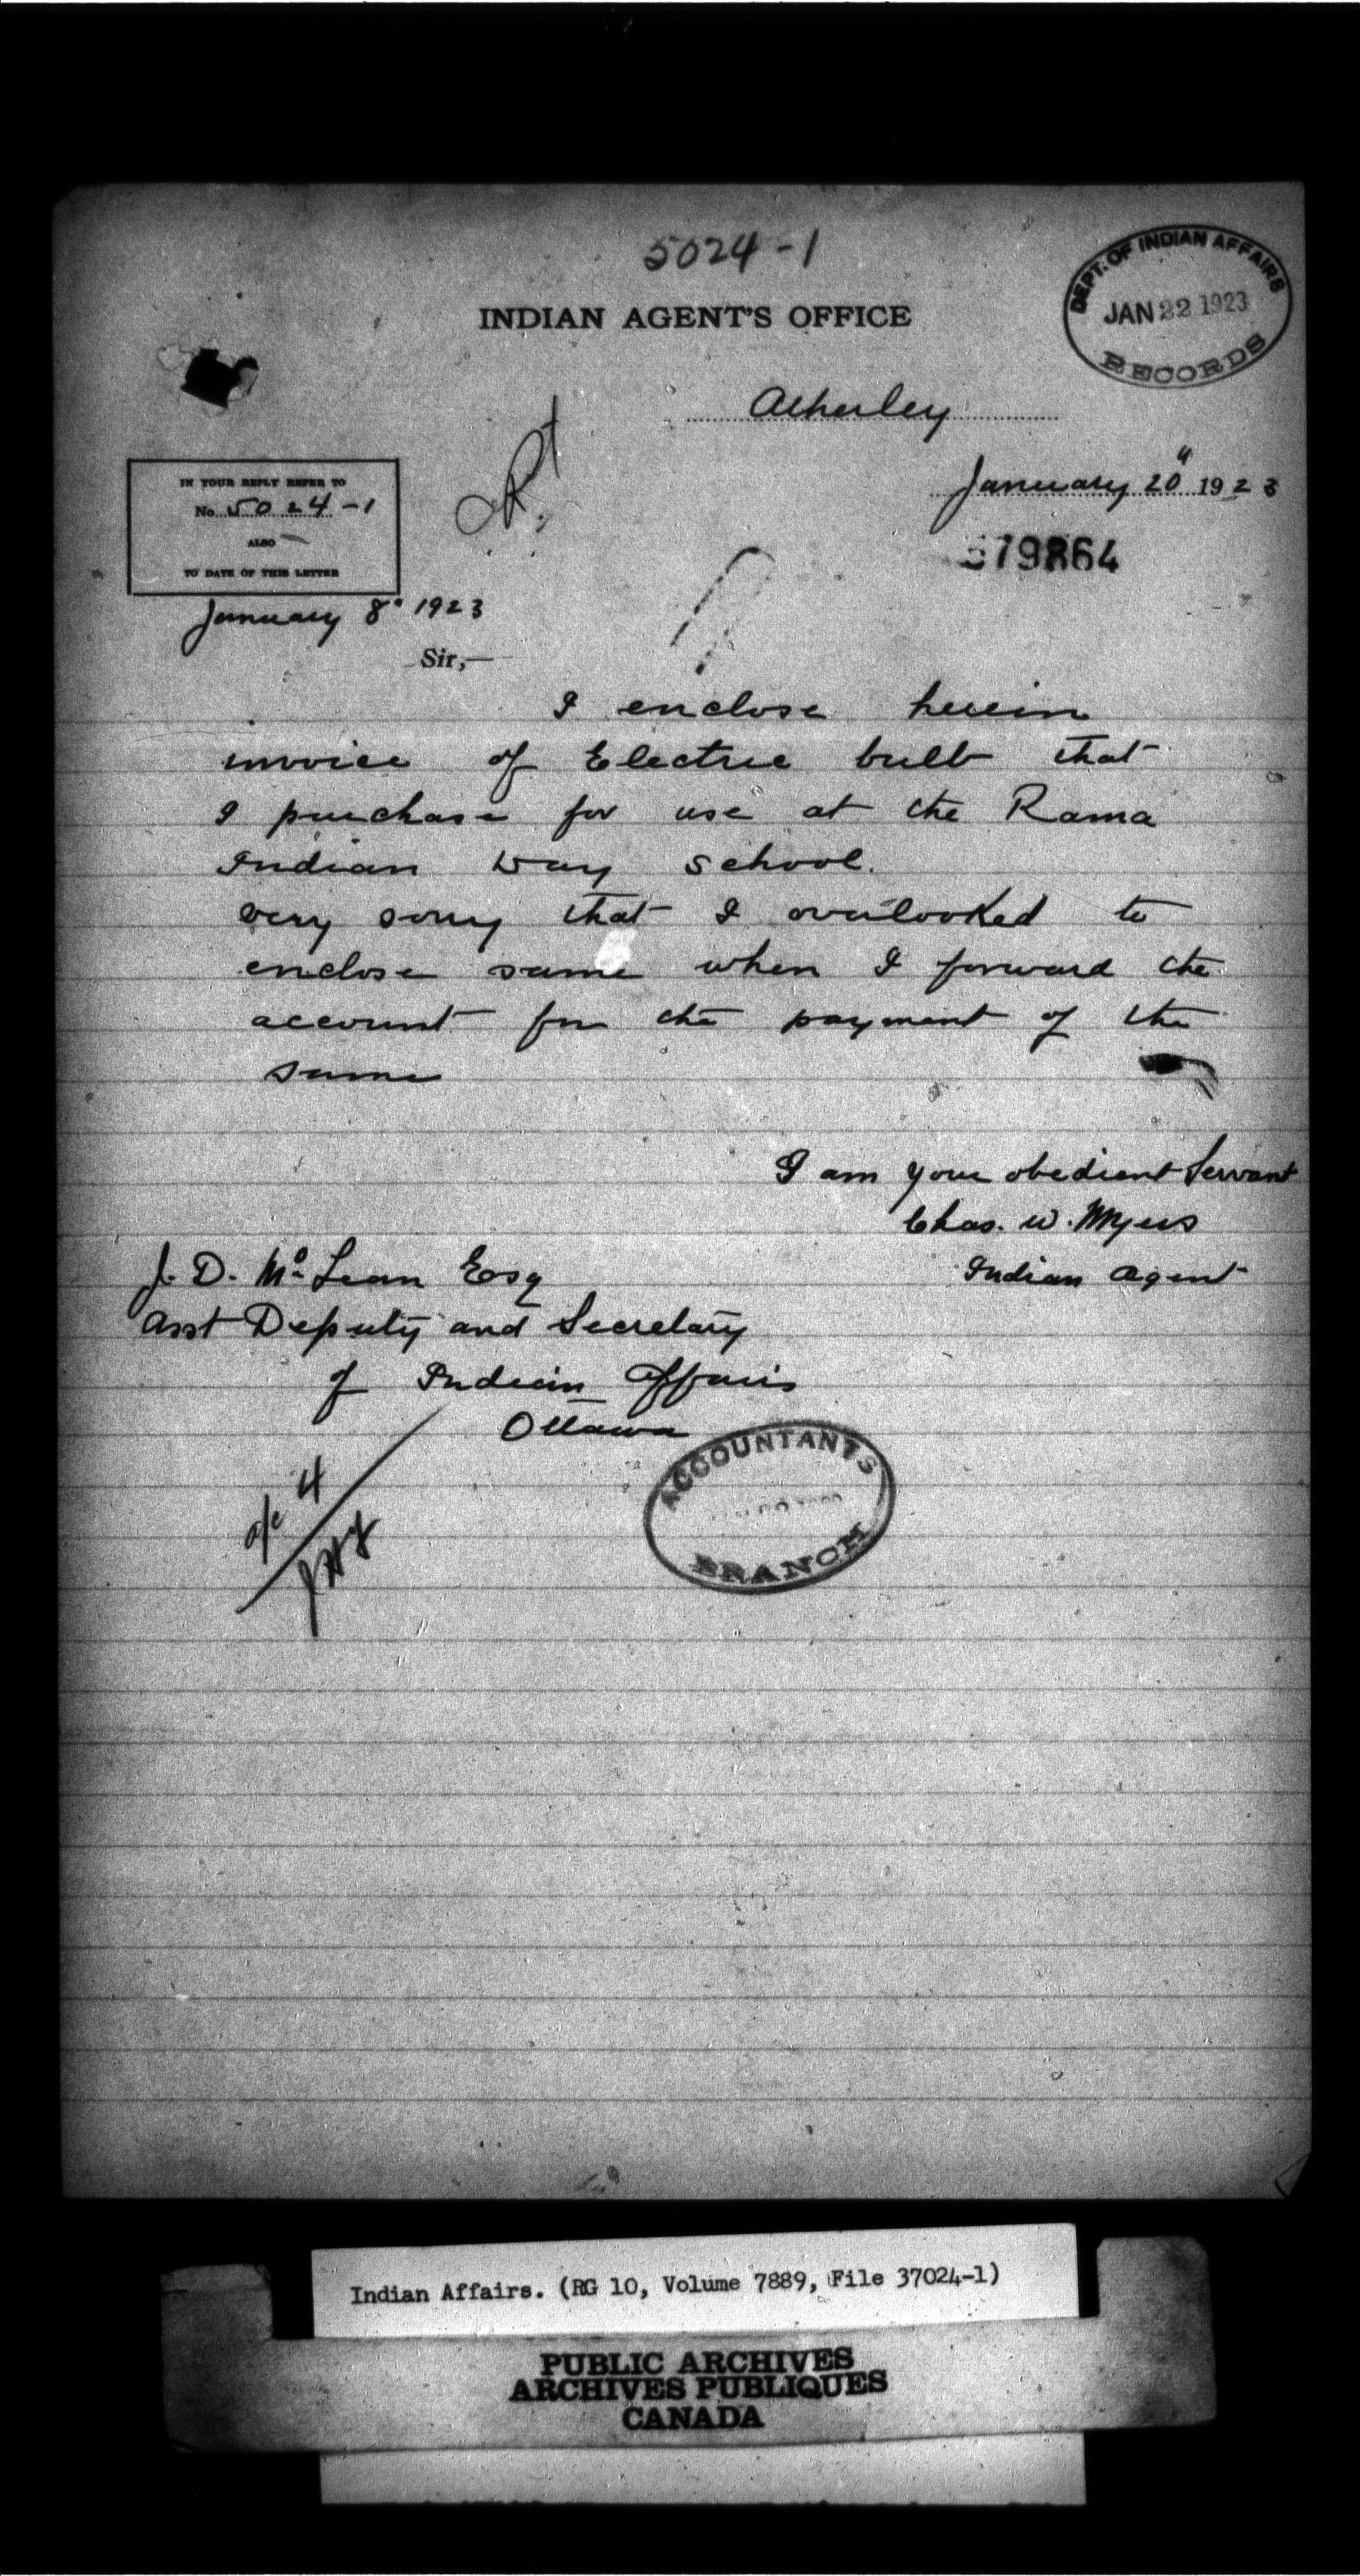 5024-1
INDIAN AGENT'S OFFICE
DEPT. OF INDIAN AFFAIRS
JAN 22 1923
RECORDS
Atherley
January 20" 1923
IN YOUR REPLY REFER TO
No. 5024-1
ALSO
TO DATE OF THIS LETTER
January 8" 1923
579864
Sir,—
I enclose herein
invoice of Electric bulb that
I purchase for use at the Rama
Indian Day School.
very sorry that I overlooked to
enclose same when I forward the
account for the payment of the
same
I am your obedient Servant
Chas. W. Myers
Indian Agent
J. D. McLean Esq
Asst Deputy and Secretary
of Indian Affairs
Ottawa
a/c 4
ACCOUNTANTS
BRANCH
Indian Affairs. (RG 10, Volume 7889, File 37024-1)
PUBLIC ARCHIVES
ARCHIVES PUBLIQUES
CANADA